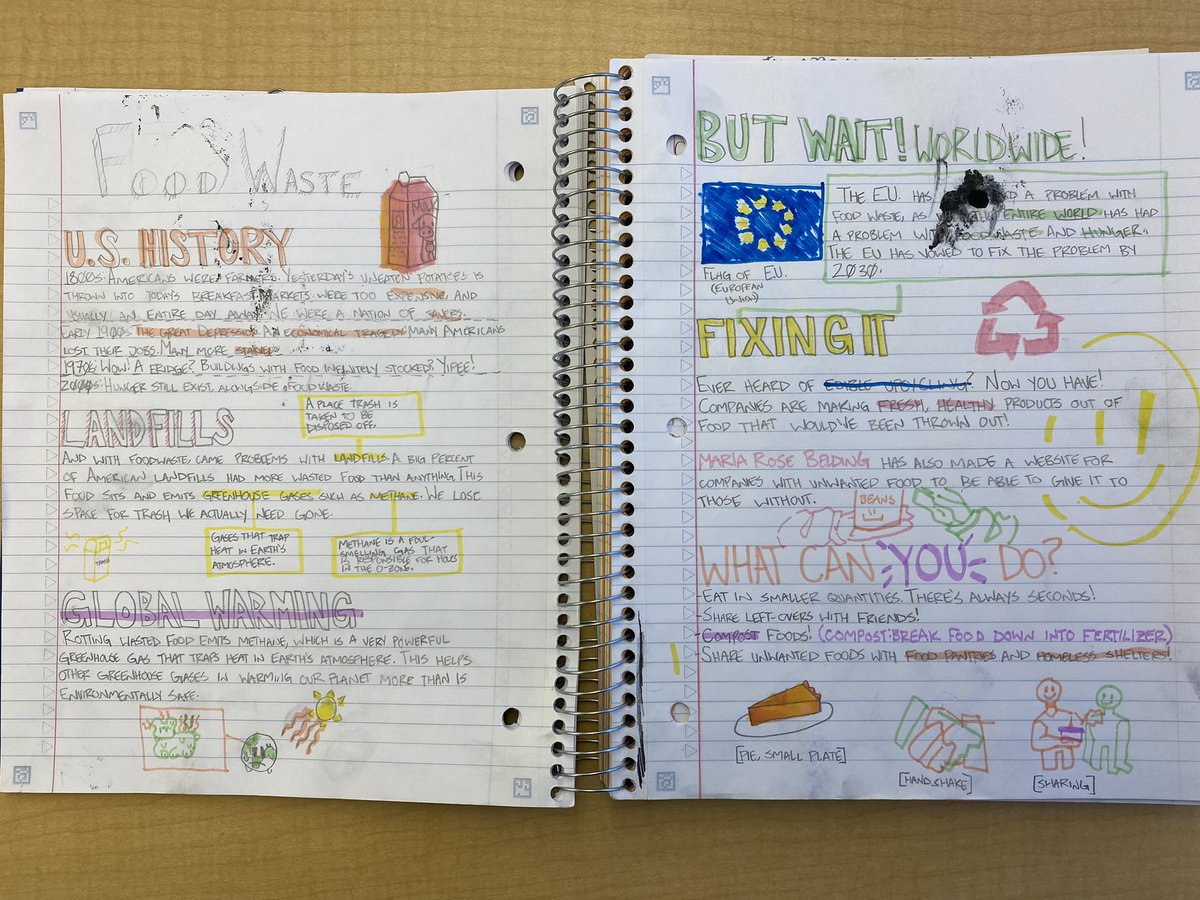 FOOD WASTE
MILK
U.S. HISTORY
1800s: AMERICANS WERE FARMERS. YESTERDAY'S UNEATEN POTATOES IS
THROWN INTO TODAY'S BREAKFAST. MARKETS WERE TOO EXPENSIVE, AND
USUALLY AN ENTIRE DAY AWAY. WE WERE A NATION OF SAVERS.
EARLY 1900s: THE GREAT DEPRESSION. AN ECONOMICAL TRAGEDY. MANY AMERICANS
LOST THEIR JOBS. MANY MORE STARVED.
1970s: WOW! A FRIDGE? BUILDINGS WITH FOOD INFINITELY STOCKED? YIPEE!
2000s: HUNGER STILL EXIST, ALONGSIDE FOOD WASTE.
LANDFILLS
A PLACE TRASH IS
TAKEN TO BE
DISPOSED OFF.
AND WITH FOODWASTE, CAME PROBLEMS WITH LANDFILLS. A BIG PERCENT
OF AMERICAN LANDFILLS HAD MORE WASTED FOOD THAN ANYTHING. THIS
FOOD SITS AND EMITS GREENHOUSE GASES SUCH AS METHANE. WE LOSE
SPACE FOR TRASH WE ACTUALLY NEED GONE.
GASES THAT TRAP
HEAT IN EARTH'S
ATMOSPHERE.
METHANE IS A FOUL-
SMELLING GAS THAT
IS RESPONSIBLE FOR HOLES
IN THE O-ZONE.
GLOBAL WARMING
ROTTING WASTED FOOD EMITS METHANE, WHICH IS A VERY POWERFUL
GREENHOUSE GAS THAT TRAPS HEAT IN EARTH'S ATMOSPHERE. THIS HELPS
OTHER GREENHOUSE GASES IN WARMING OUR PLANET MORE THAN IS
ENVIRONMENTALLY SAFE.
BUT WAIT! WORLDWIDE!
THE E.U. HAS A PROBLEM WITH
FOOD WASTE, AS THE ENTIRE WORLD HAS HAD
A PROBLEM WITH FOODWASTE AND HUNGER.
THE EU HAS VOWED TO FIX THE PROBLEM BY
2030.
FLAG OF EU.
(EUROPEAN
UNION)
FIXING IT
EVER HEARD OF EDIBLE UPCYCLING? NOW YOU HAVE!
COMPANIES ARE MAKING FRESH, HEALTHY PRODUCTS OUT OF
FOOD THAT WOULD'VE BEEN THROWN OUT!
MARIA ROSE BELDING HAS ALSO MADE A WEBSITE FOR
COMPANIES WITH UNWANTED FOOD TO BE ABLE TO GIVE IT TO
THOSE WITHOUT.
BEANS
WHAT CAN YOU DO?
-EAT IN SMALLER QUANTITIES. THERE'S ALWAYS SECONDS!
-SHARE LEFT-OVERS WITH FRIENDS!
-COMPOST FOODS! (COMPOST: BREAK FOOD DOWN INTO FERTILIZER)
-SHARE UNWANTED FOODS WITH FOOD PANTRIES AND HOMELESS SHELTERS!
[PIE, SMALL PLATE]
[HANDSHAKE]
[SHARING]